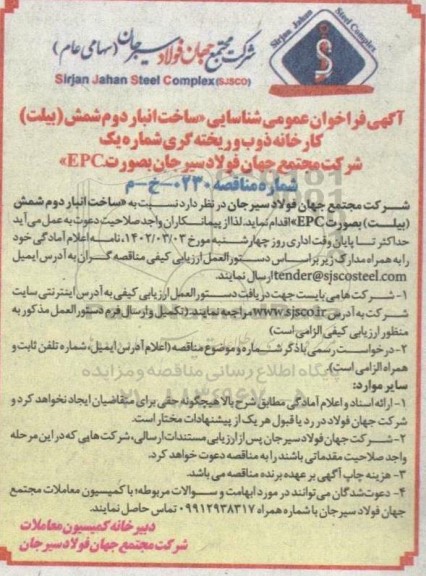 Sirjan Jahan
Steel Complex
شرکت مجتمع جهان فولاد سیرجان (سهامی عام)
Sirjan Jahan Steel Complex (SJSCO)
آگهی فراخوان عمومی شناسایی «ساخت انبار دوم شمش (بیلت)
کارخانه ذوب و ریخته گری شماره یک
شرکت مجتمع جهان فولاد سیرجان بصورت EPC»
شماره مناقصه ۰۲۳۰-خ-م
شرکت مجتمع جهان فولاد سیرجان در نظر دارد نسبت به «ساخت انبار دوم شمش
(بیلت) بصورت EPC» اقدام نماید. لذا از پیمانکاران واجد صلاحیت دعوت به عمل می آید
حداکثر تا پایان وقت اداری روز چهارشنبه مورخ ۱۴۰۲/۰۳/۰۳، نامه اعلام آمادگی خود
را به همراه مدارک زیر براساس دستورالعمل ارزیابی کیفی مناقصه گران به آدرس ایمیل
tender@sjscosteel.com ارسال نمایند.
۱- شرکت ها می بایست جهت دریافت دستورالعمل ارزیابی کیفی به آدرس اینترنتی سایت
شرکت به آدرس www.sjsco.ir مراجعه نمایند. (تکمیل و ارسال فرم دستورالعمل مذکور به
منظور ارزیابی کیفی الزامی است)
۲- درخواست رسمی با ذکر شماره و موضوع مناقصه (اعلام آدرس ایمیل، شماره تلفن ثابت و
همراه الزامی است).
سایر موارد:
۱- ارائه اسناد و اعلام آمادگی مطابق شرح بالا هیچگونه حقی برای متقاضیان ایجاد نخواهد کرد و
شرکت جهان فولاد در رد یا قبول هر یک از پیشنهادات مختار است.
۲- شرکت جهان فولاد سیرجان پس از ارزیابی مستندات ارسالی، شرکت هایی که در این مرحله
واجد صلاحیت مقدماتی باشند را به مناقصه دعوت خواهد کرد.
۳- هزینه چاپ آگهی بر عهده برنده مناقصه می باشد.
۴- دعوت شدگان می توانند در مورد ابهامات و سوالات مربوطه؛ با کمیسیون معاملات مجتمع
جهان فولاد سیرجان با شماره همراه ۰۹۹۱۲۹۳۸۳۱۷ تماس حاصل نمایند.
دبیرخانه کمیسیون معاملات
شرکت مجتمع جهان فولاد سیرجان